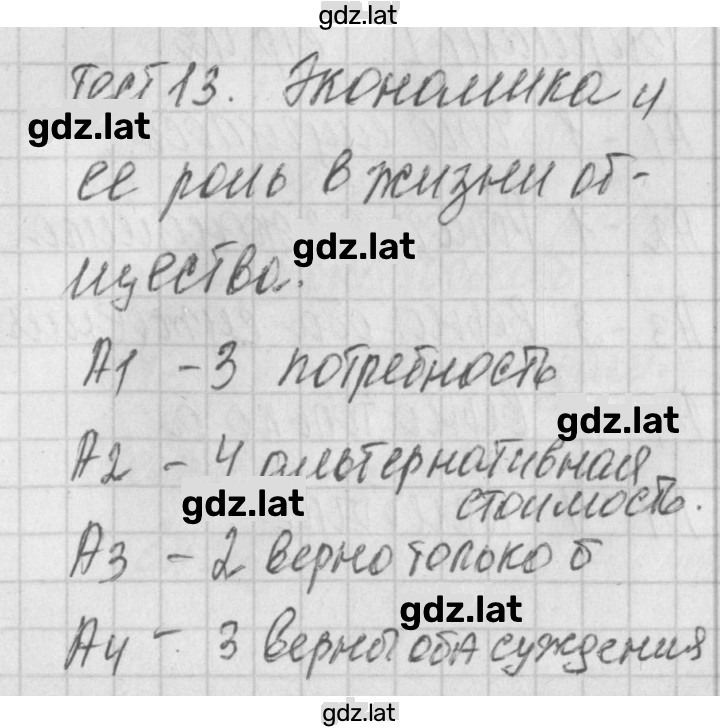 gdz.lat
Тест 13. Экономика и
gdz.lat
ее роль в жизни об-
gdz.lat
щества.
А1 - 3 потребность
gdz.lat
А2 - 4 альтернативная
gdz.lat
стоимость.
А3 - 2 верно только б
gdz.lat
А4 - 3 верны оба суждения
gdz.lat